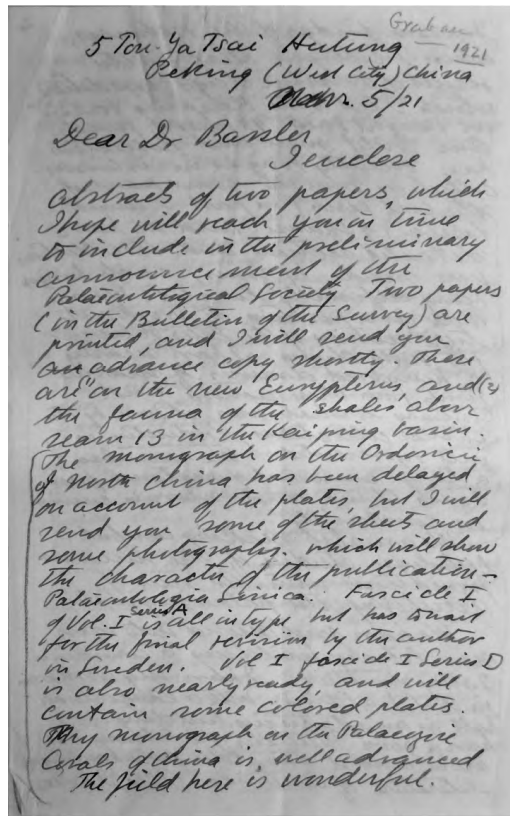 Grabau
1921
5 Tou-Ya Tsai Hutung
Peking (West City) China
Nov. 5/21
Dear Dr Bassler
I enclose
abstracts of two papers, which
I hope will reach you in time
to include in the preliminary
announcement of the
Palaeontological Society. Two papers
(in the Bulletin of the Survey) are
printed, and I will send you
an advance copy shortly. These
are (1) on the new Eurypterus, and (2)
the fauna of the shales above
seam 13 in the Kaiping basin.
The monograph on the Ordovicic
of North China has been delayed
on account of the plates, but I will
send you some of the sheets and
some photographs. which will show
the character of the publication –
Palaeontologia Sinica. Fascicle I
of Vol. I Series A is all in type but has to wait
for the final revision by the author
in Sweden. Vol I fascicle I Series D
is also nearly ready, and will
contain some colored plates.
My monograph on the Palaeozoic
Corals of China is well advanced
The field here is wonderful.